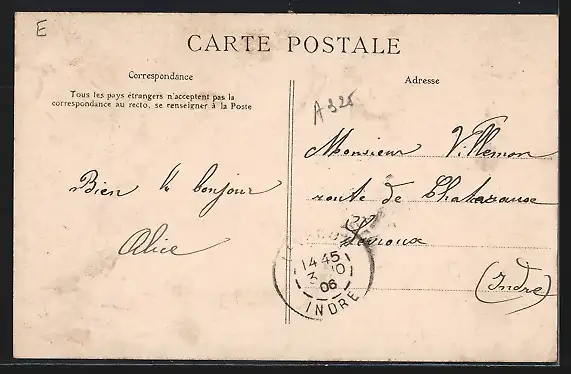 E
CARTE POSTALE
Correspondance
Tous les pays étrangers n'acceptent pas la
correspondance au recto, se renseigner à la Poste
Bien le bonjour
Alice
Adresse
A325
Monsieur Villemon
route de
Levroux
(Indre)
1445
3 10
06
INDRE